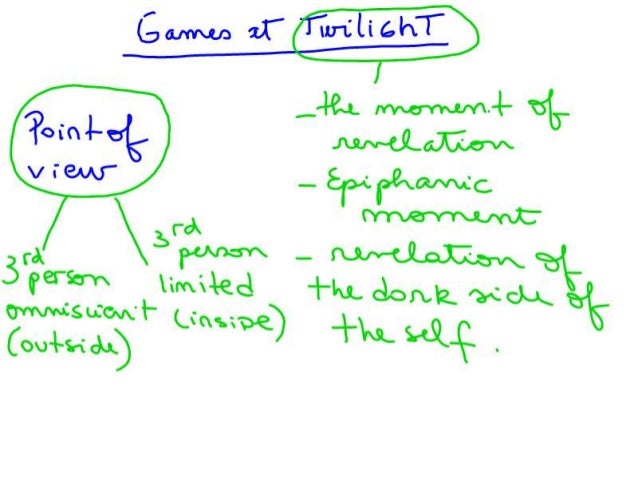 Games at Twilight
Point of
view
3rd
person
omniscient
(outside)
3rd
person
limited
(inside)
- the moment of
revelation
- Epiphanic
moment
- revelation of
the dark side of
the self.